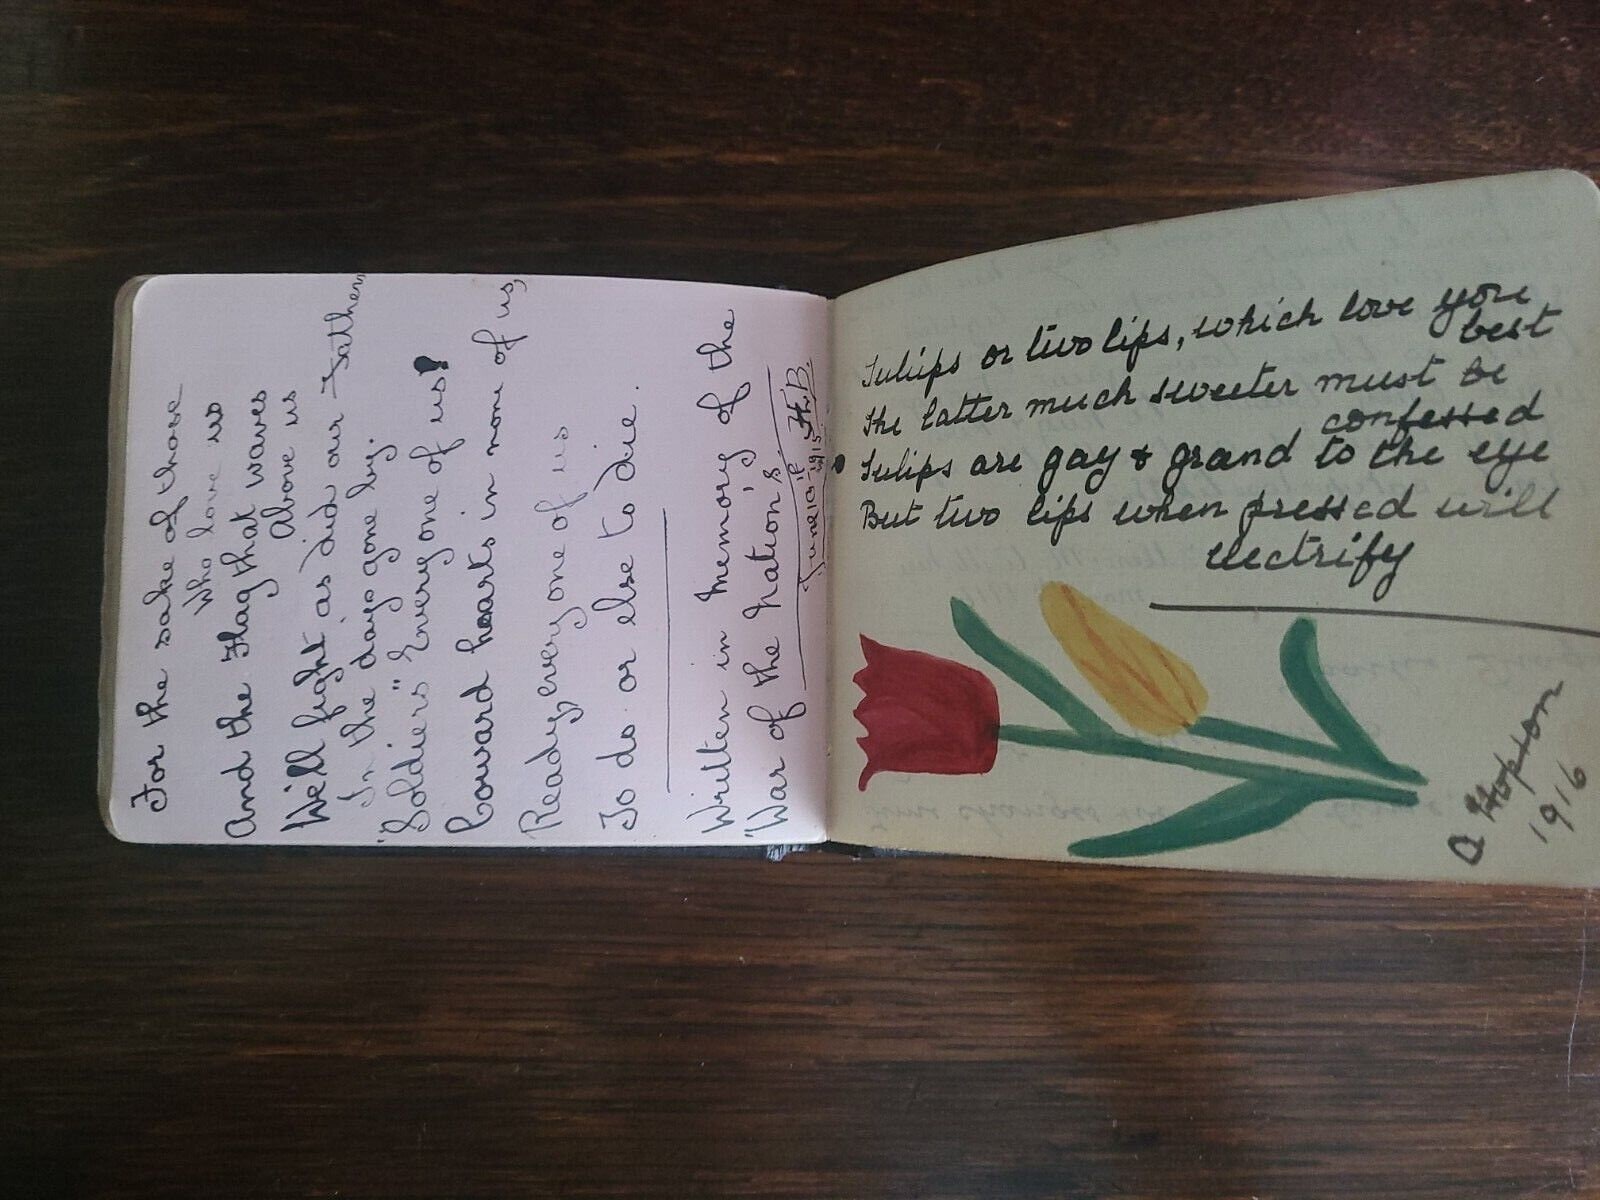 For the sake of those
who love us
And the Flag that waves
Above us
We'll fight as did our Fathers
In the days gone by.
"Soldiers" Every one of us!
Coward hearts in none of us,
Ready, every one of us
To do or else to die.
Written in Memory of the
"War of the Nation's.
June 10th 1915. H.B.
Tulips or two lips, which love you
best
The latter much sweeter must be
confessed
Tulips are gay & grand to the eye
But two lips when pressed will
electrify
A Hopton
1916